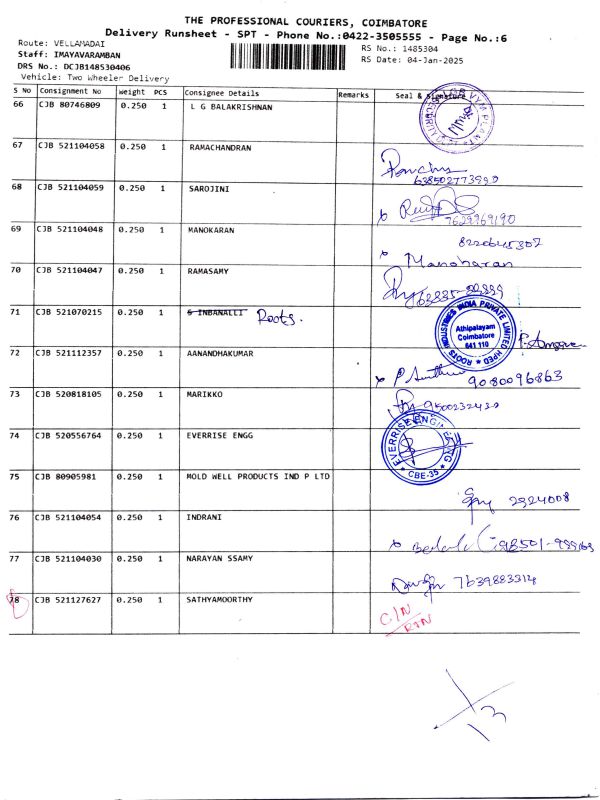 THE PROFESSIONAL COURIERS, COIMBATORE
Delivery Runsheet - SPT - Phone No.:0422-3505555 - Page No.:6
Route: VELLAMADAI
Staff: IMAYAVARAMBAN
DRS No.: DCJB148530406
Vehicle: Two Wheeler Delivery
RS No.: 1485304
RS Date: 04-Jan-2025
S No Consignment No Weight PCS Consignee Details Remarks Seal & Signature
66 CJB 80746809 0.250 1 L G BALAKRISHNAN
67 CJB 521104058 0.250 1 RAMACHANDRAN
68 CJB 521104059 0.250 1 SAROJINI
7639969190
69 CJB 521104048 0.250 1 MANOKARAN
Manoharan
70 CJB 521104047 0.250 1 RAMASAMY
71 CJB 521070215 0.250 1 S INBANALLI Roots.
ROOTS INDUSTRIES INDIA PRIVATE LIMITED HPED
Athipalayam
Coimbatore
641 110
72 CJB 521112357 0.250 1 AANANDHAKUMAR
9080096863
73 CJB 520818105 0.250 1 MARIKKO
74 CJB 520556764 0.250 1 EVERRISE ENGG
EVERRISE ENGINEERING
CBE-35
75 CJB 80905981 0.250 1 MOLD WELL PRODUCTS IND P LTD
2924008
76 CJB 521104054 0.250 1 INDRANI
77 CJB 521104030 0.250 1 NARAYAN SSAMY
7639883314
78 CJB 521127627 0.250 1 SATHYAMOORTHY
C/N
RTN
13